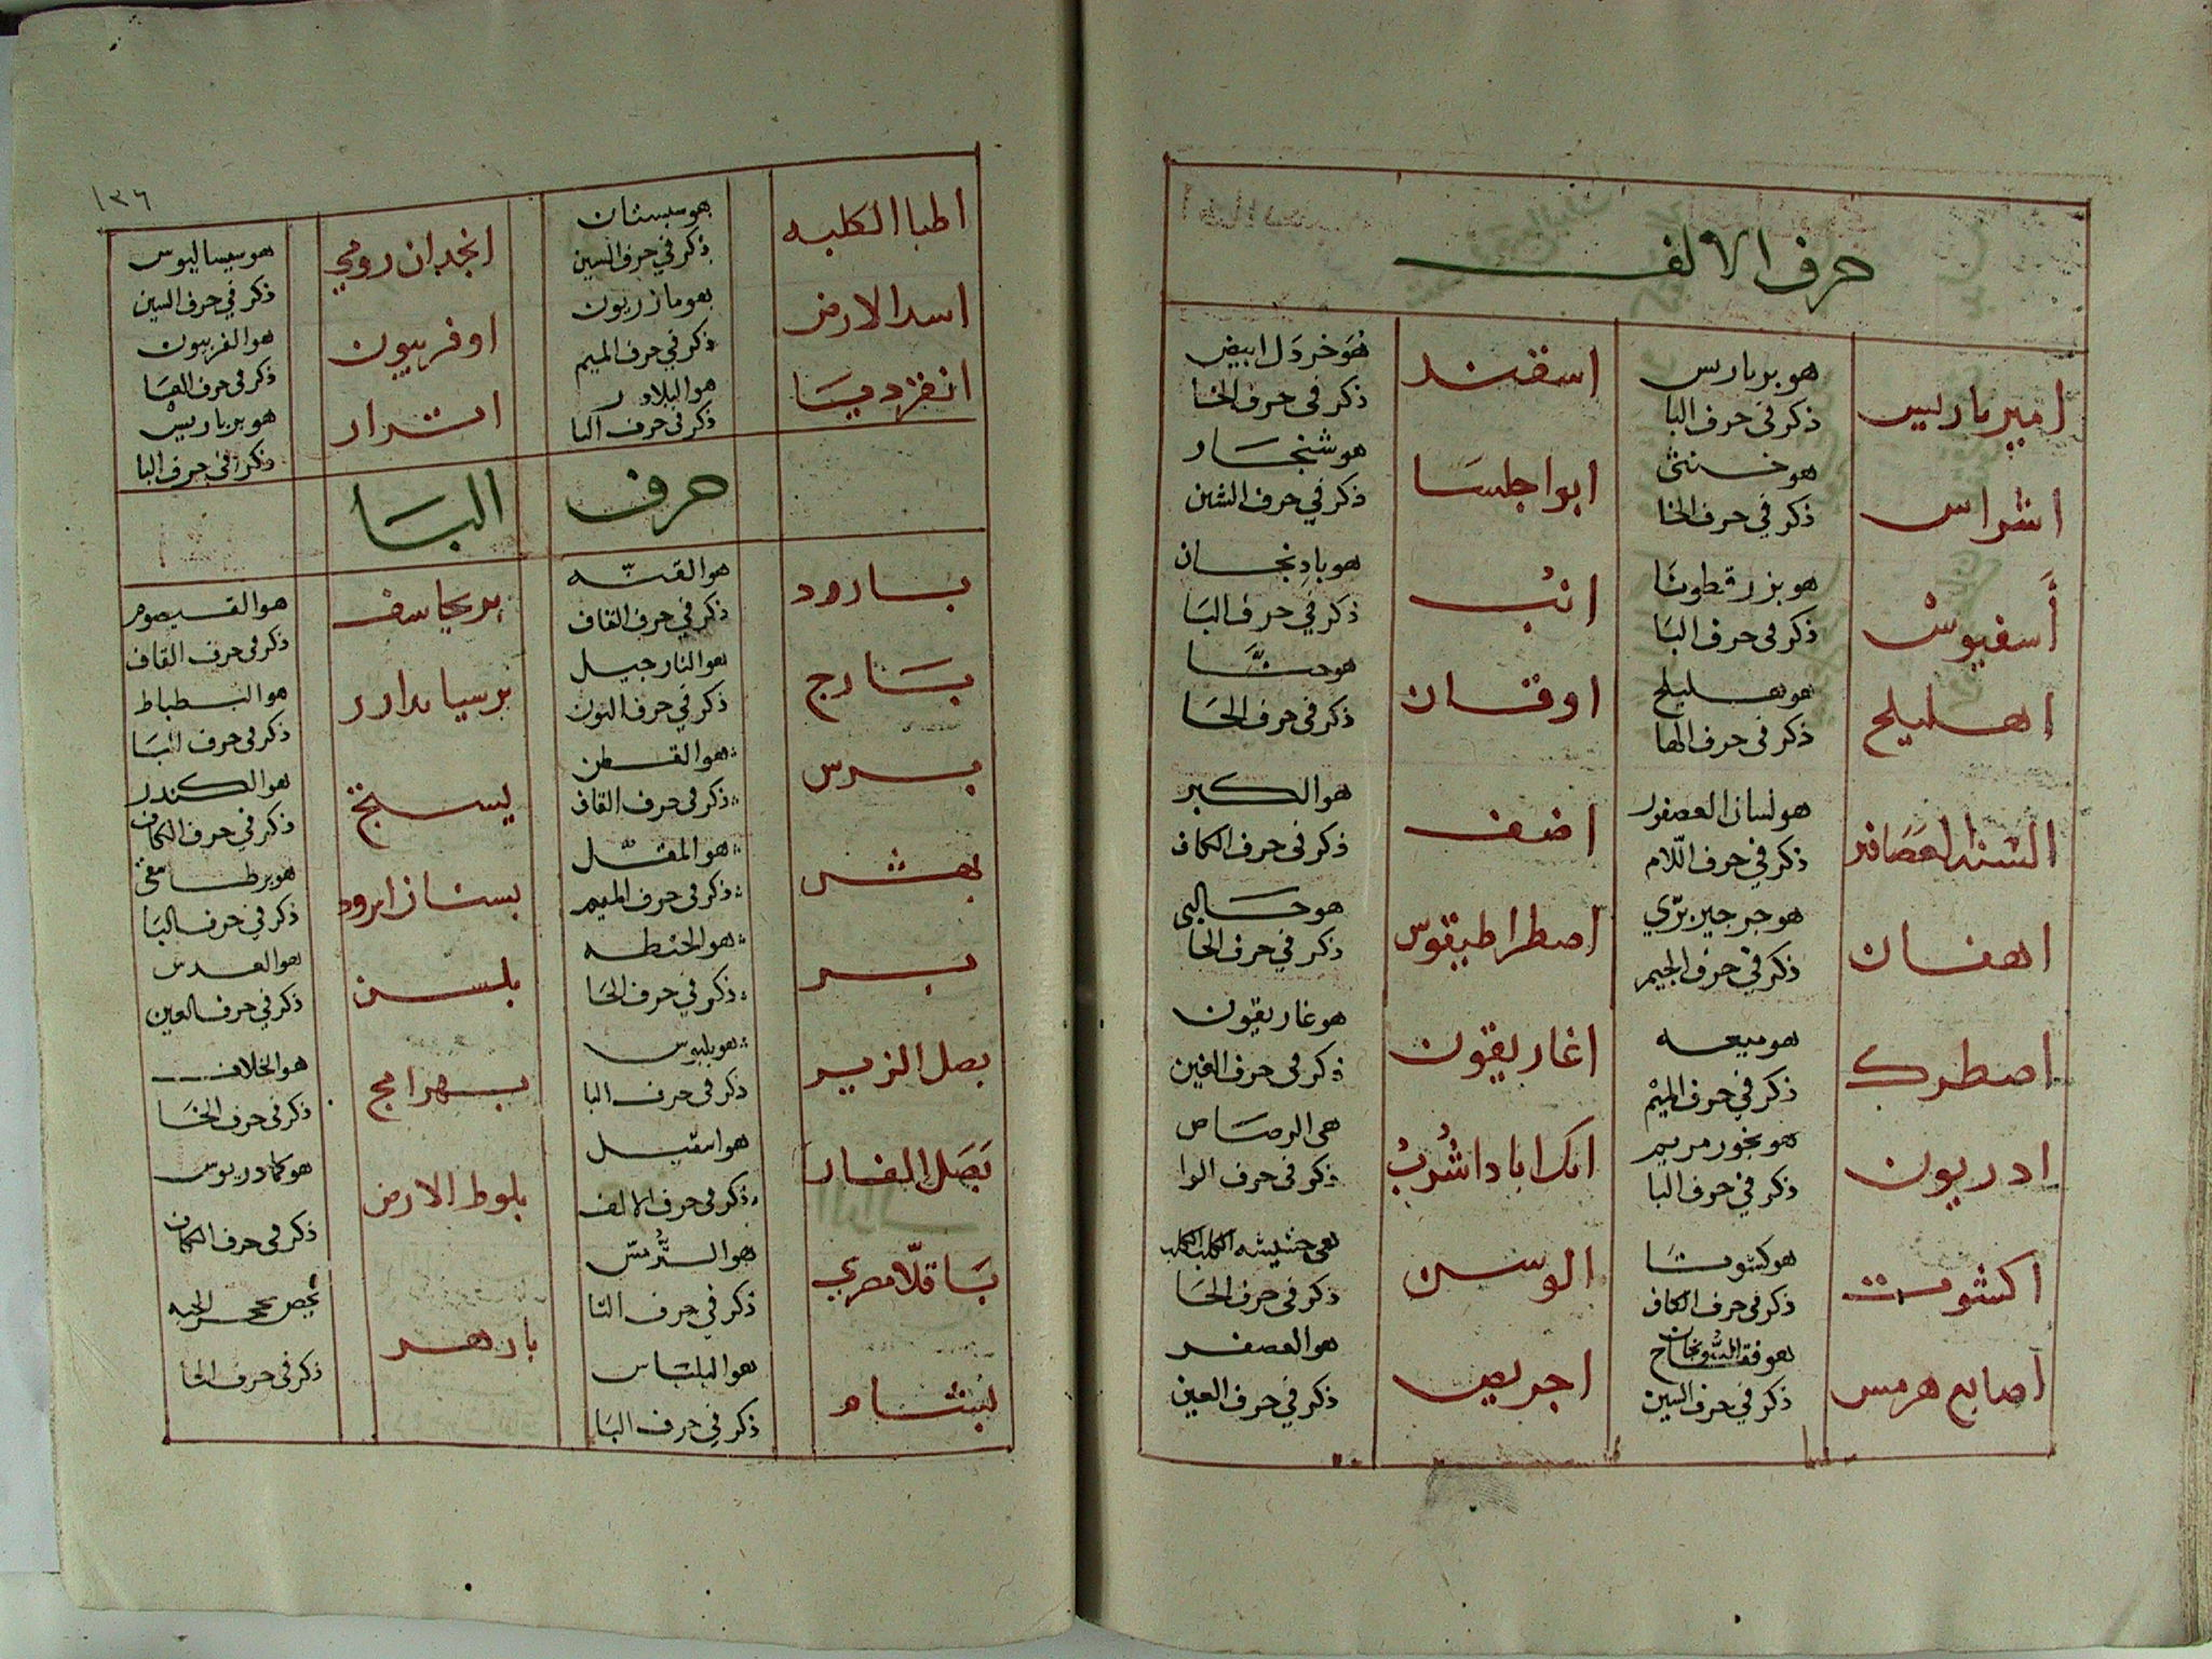 حرف الالف
امير باريس
هو بر باريس
ذكر في حرف البا
اسفند
هو خردل ابيض
ذكر في حرف الخا
اشراس
هو خنثى
ذكر في حرف الخا
ابو اجلسا
هو شنجار
ذكر في حرف الشين
أسفيوش
هو بزر قطونا
ذكر في حرف البا
انب
هو بادنجان
ذكر في حرف البا
اهليلج
هو هليلج
ذكر في حرف الها
اوقان
ذكر في حرف الحا
السنة العصافير
هو لسان العصفور
ذكر في حرف اللام
اضف
هو الكبر
ذكر في حرف الكاف
اهفان
هو جرجير برّي
ذكر في حرف الجيم
اصطراطيقوس
هو حالبي
ذكر في حرف الحا
اصطرك
هو ميعه
ذكر في حرف الميم
اغاريقون
هو غاريقون
ذكر في حرف الغين
ادريون
هو بخور مريم
ذكر في حرف البا
هي الرصاص
ذكر في حرف الرا
اكشوت
هو كشوت
ذكر في حرف الكاف
الوسن
هي حشيشه الكلب
ذكر في حرف الحا
أصابع هرمس
هو فقاح السورنجان
ذكر في حرف السين
اجريض
هو العصفر
ذكر في حرف العين
١٣٦
اطبا الكلبه
هو سبستان
ذكر في حرف السين
انجدان رومي
هو سيساليوس
ذكر في حرف السين
اسد الارض
هو مازريون
ذكر في حرف الميم
اوفربيون
هو الفربيون
ذكر في حرف الفا
انقرديا
هو البلادر
ذكر في حرف البا
اترار
هو بر باريس
ذكر في حرف البا
حرف البا
بارود
هو القنّه
ذكر في حرف القاف
برنجاسف
هو القيصوم
ذكر في حرف القاف
بارج
هو النارجيل
ذكر في حرف النون
برسيان دارر
هو البطباط
ذكر في حرف البا
برس
هو القطن
ذكر في حرف القاف
بستج
هو الكندر
ذكر في حرف الكاف
بهش
هو المقل
ذكر في حرف الميم
بستان ابرود
ذكر في حرف البا
بر
هو الحنطه
ذكر في حرف الحا
بلسن
هو العدس
ذكر في حرف العين
بصل الزير
هو بلبوس
ذكر في حرف البا
بهرامج
هو الخلاف
ذكر في حرف الخا
بصل الفار
هو اسقيل
ذكر في حرف الالف
بلوط الارض
هو كمادريوس
ذكر في حرف الكاف
باقلا مصري
هو الترمس
ذكر في حرف التا
بازهر
ذكر في حرف الحا
بشام
هو البلسان
ذكر في حرف البا